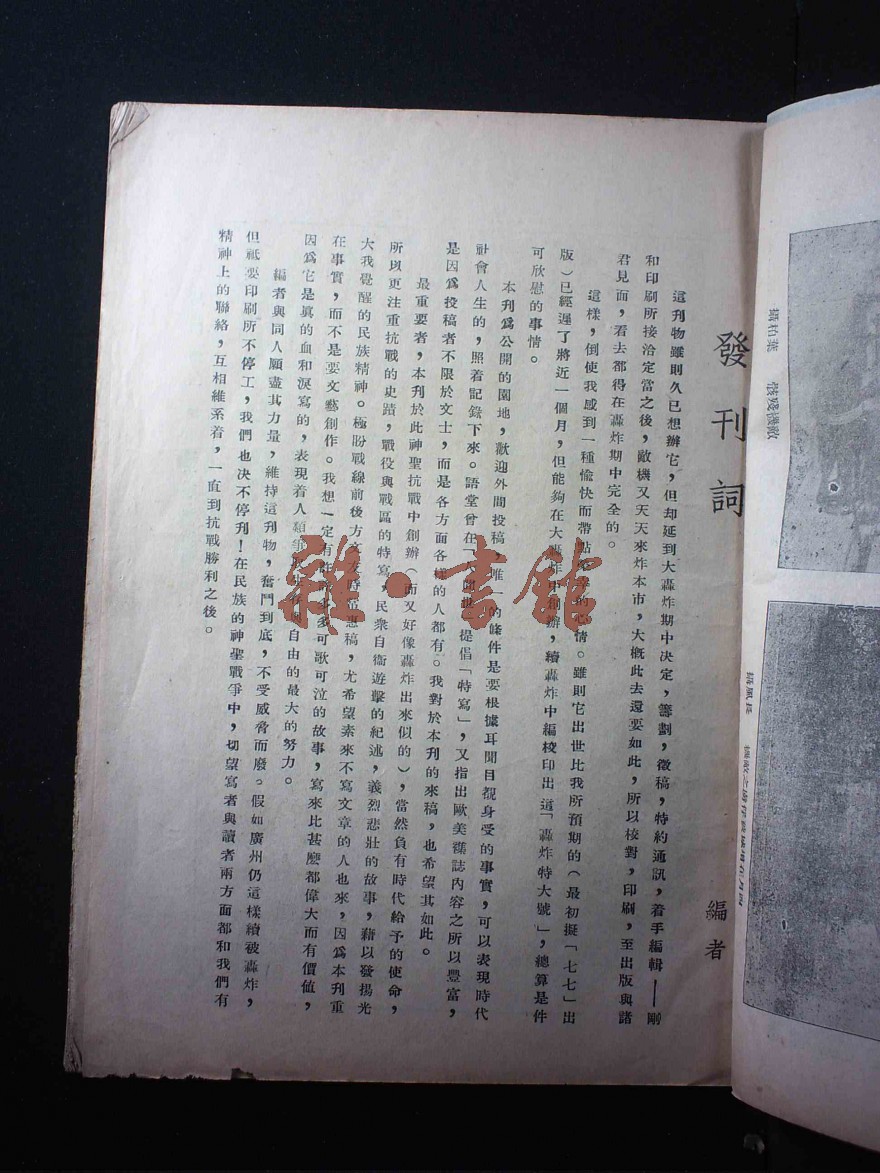 發刊詞
編者
這刊物雖則久已想辦它，但却延到大轟炸期中决定，籌劃，徵稿，特約通訊，着手編輯——剛
和印刷所接洽定當之後，敵機又天天來炸本市，大槪此去還要如此，所以校對，印刷，至出版與諸
君見面，看去都得在轟炸期中完全的。
這樣，倒使我感到一種愉快而帶點 的心情。雖則它出世比我所預期的（最初擬「七七」出
版）已經遲了將近一個月，但能夠在大轟炸中創辦，續轟炸中編校印出這「轟炸特大號」，總算是件
可欣慰的事情。
本刊爲公開的園地，歡迎外間投稿，唯一的條件是要根據耳聞目覩身受的事實，可以表現時代
社會人生的，照着記錄下來。語堂曾在「人間世」提倡「特寫」，又指出歐美雜誌內容之所以豐富，
是因爲投稿者不限於文士，而是各方面各樣的人都有。我對於本刊的來稿，也希望其如此。
最重要者，本刊於此神聖抗戰中創辦（而又好像轟炸出來似的），當然負有時代給予的使命，
所以更注重抗戰的史蹟，戰役與戰區的特寫，民衆自衞遊擊的紀述，義烈悲壯的故事，藉以發揚光
大我覺醒的民族精神。極盼戰線前後方文友 惠稿，尤希望素來不寫文章的人也來，因爲本刊重
在事實，而不是要文藝創作。我想一定有 多可歌可泣的故事，寫來比甚麽都偉大而有價値，
因爲它是眞的血和淚寫的，表現着人類爭 自由的最大的努力。
編者與同人願盡其力量，維持這刊物，奮鬥到底，不受威脅而廢。假如廣州仍這樣續被轟炸，
但祗要印刷所不停工，我們也决不停刋！在民族的神聖戰爭中，切望寫者與讀者兩方面都和我們有
精神上的聯絡，互相維系着，一直到抗戰勝利之後。
雜·書館
敵機殘骸